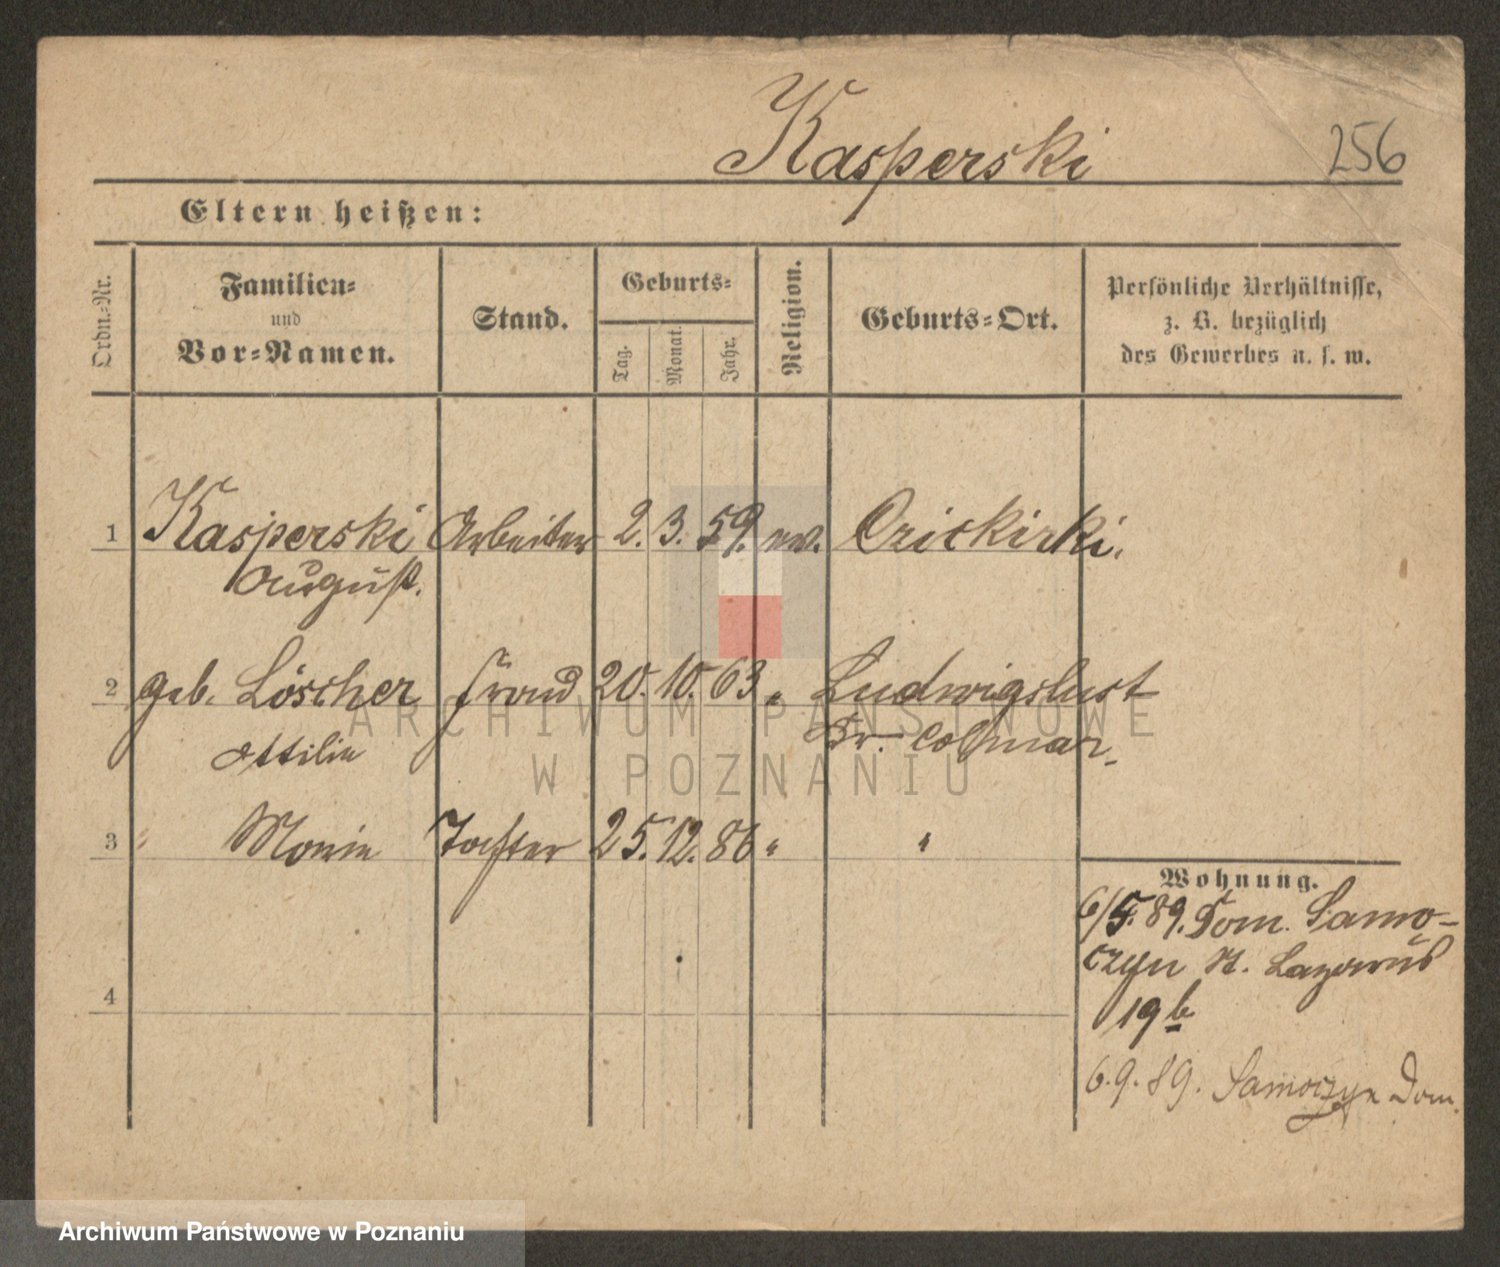 Kasperski
256
Eltern heißen:
Ordn.-Nr.
Familien=
und
Vor=Namen.
Stand.
Geburts=
Tag.
Monat.
Jahr.
Religion.
Geburts=Ort.
Persönliche Verhältnisse,
z. B. bezüglich
des Gewerbes u. s. w.
1 Kasperski Arbeiter 2. 3. 59. ev.
August.
2 geb. Löscher Frau 20. 10. 63 " Ludwigslust
Ottilie Kr. Colmar.
3 " Marie Tochter 25. 12. 86 " "
4
Wohnung.
6/5. 89. Dom. Samo-
czyn St. Lazarus
19b
6. 9. 89. Samoczyn Dom.
ARCHIWUM PAŃSTWOWE
W POZNANIU
Archiwum Państwowe w Poznaniu